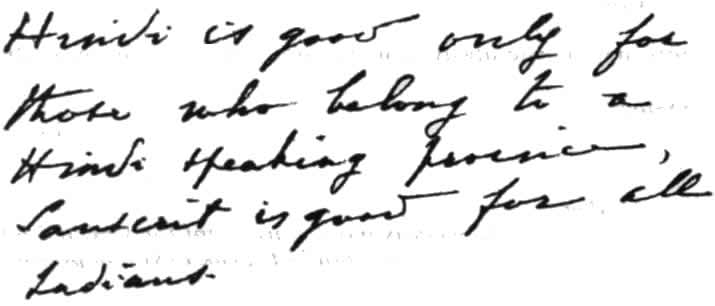 Hindi is good only for
those who belong to a
Hindi speaking province,
Sanscrit is good for all
Indians.